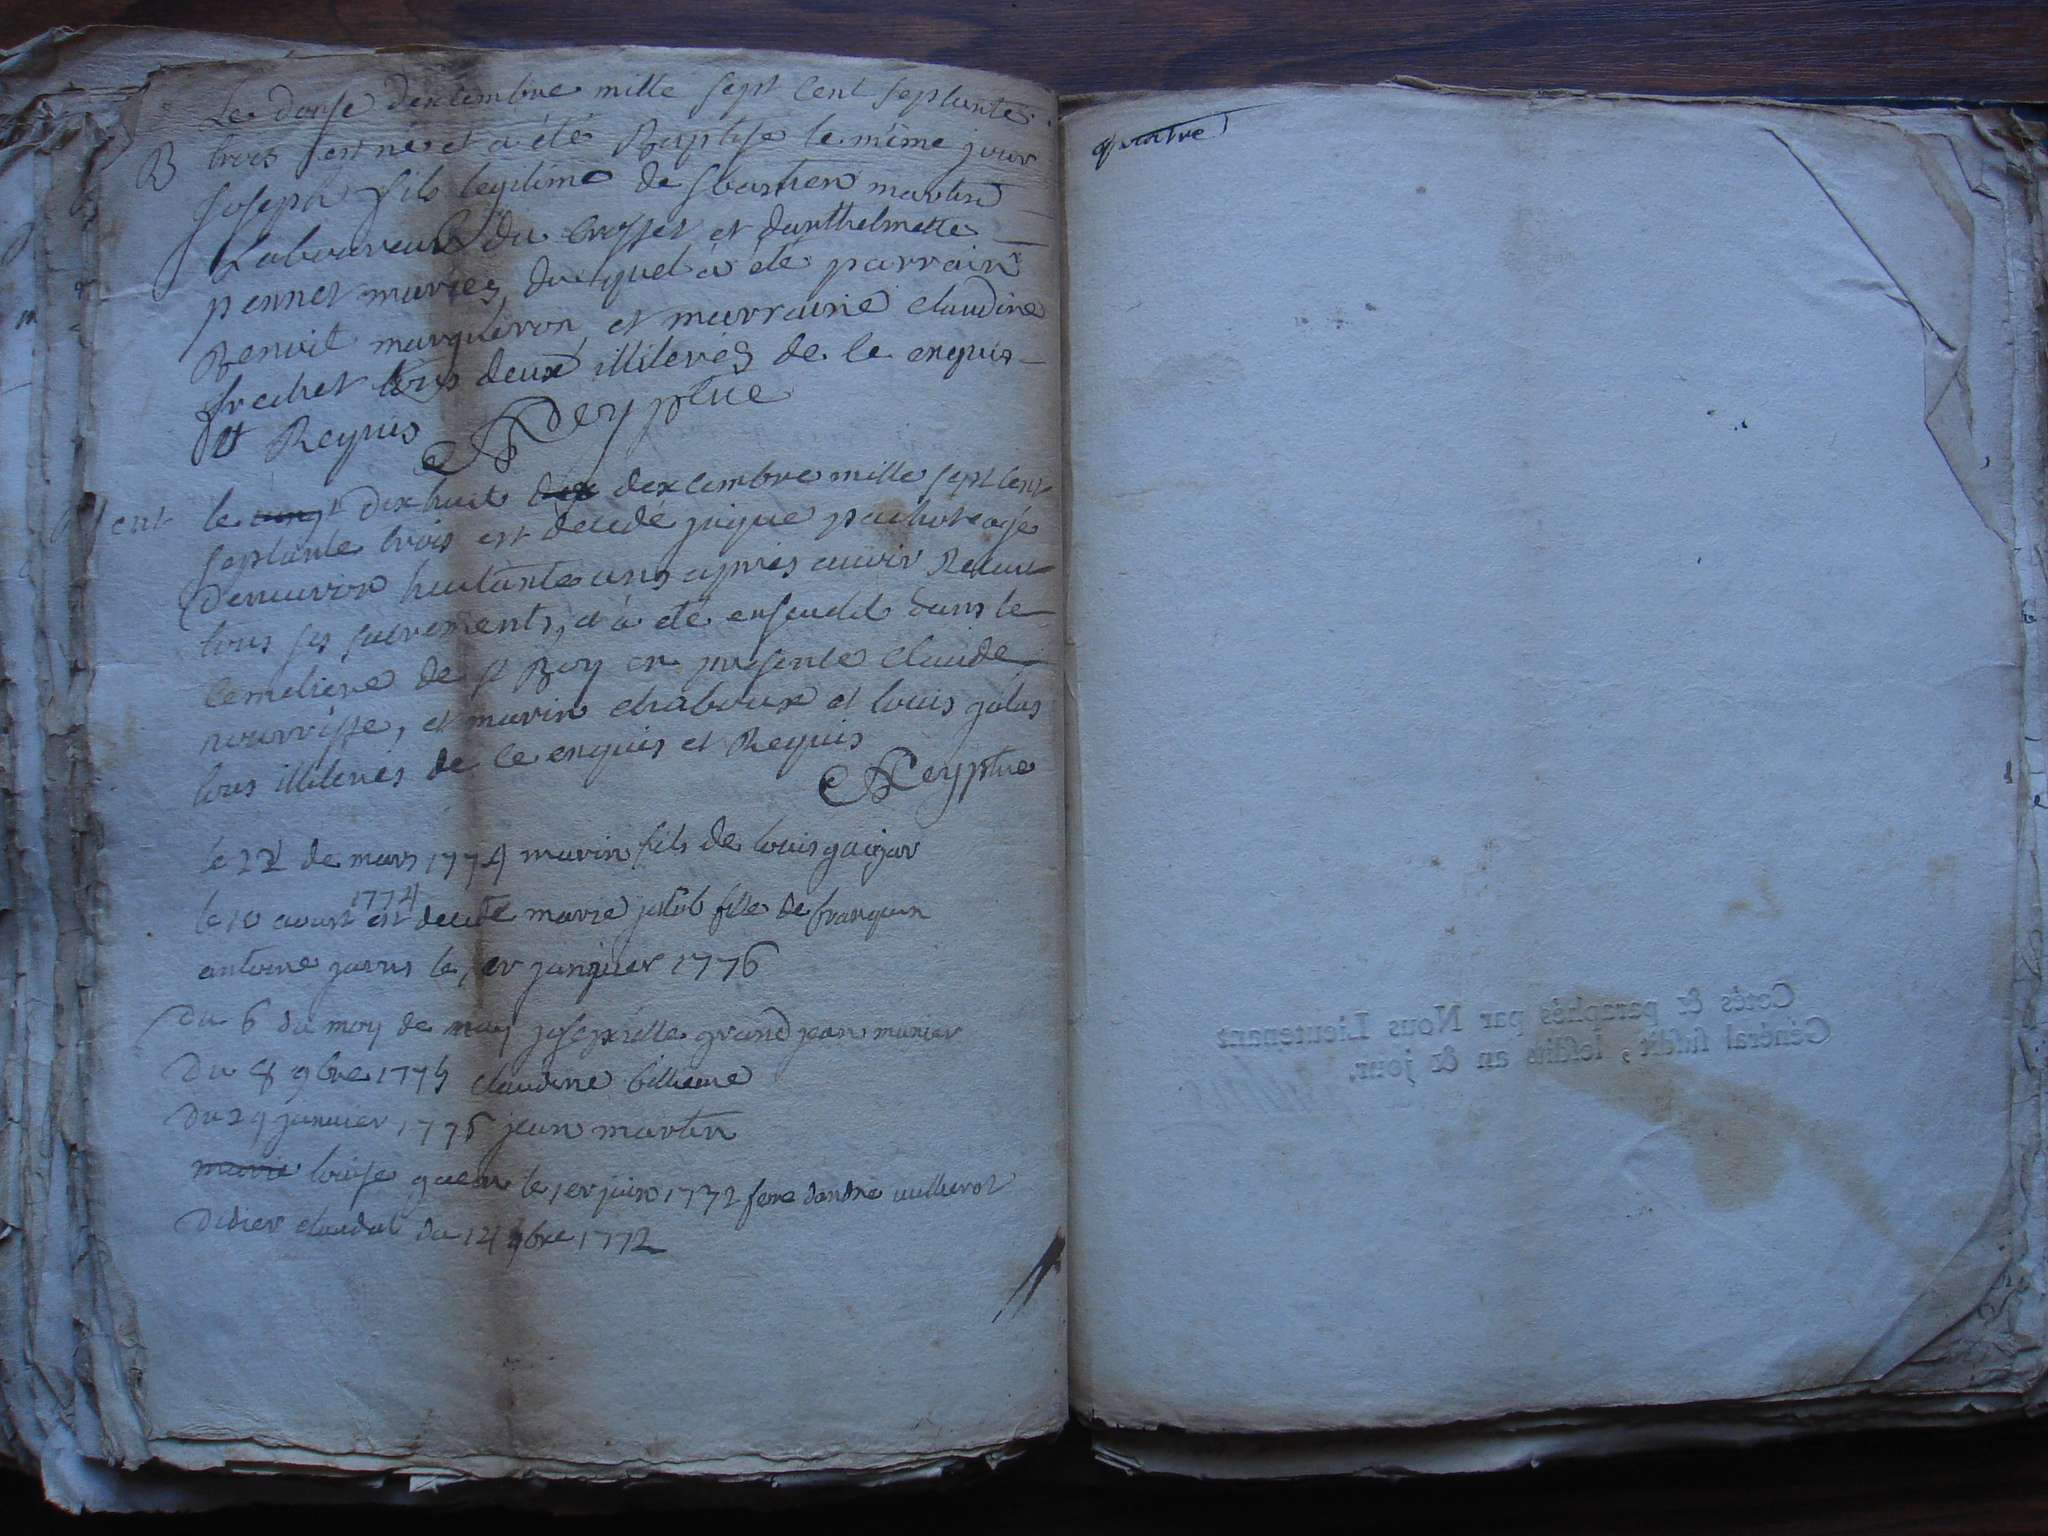 Le douse dexcembre mille sept cent septante
B trois est né et a été Baptise le même jour
joseph fils legitime de sbastien martin
Laboureur du crosset et danthelmette
pernet mariés, duquel à été parrain
Benoit marquéron et marraine claudine
frachet tous deux illiterés de le enquis
et Requis Rey ptre
ent le vingt dixhuit dex dexcembre mille sept cent
septante trois est decedé pachot agé
denviron huitante ans apres avoir Recu
tous ses sacrements, et à été enseveli dans le
cemetiere de st Roy en presente claude
nourrisse, et marin chaboux et louis galas
tous illiterés de le enquis et Requis
Rey ptre
le 22 de mars 1774 marin fils de louis
1774
le 10 aoust est decede marie jacob fille de franquin
antoine le 1er janvier 1776
du 6 du moy de may grand jean
du 8 9bre 1775 claudine billieme
du 29 janvier 1776 jean martin
marie louise le 1er juin 1772 feme dandré
Didier claudat du 14 9bre 1772
quatre
Cotés & paraphés par Nous Lieutenant
Général susdit, lesdits an & jour.